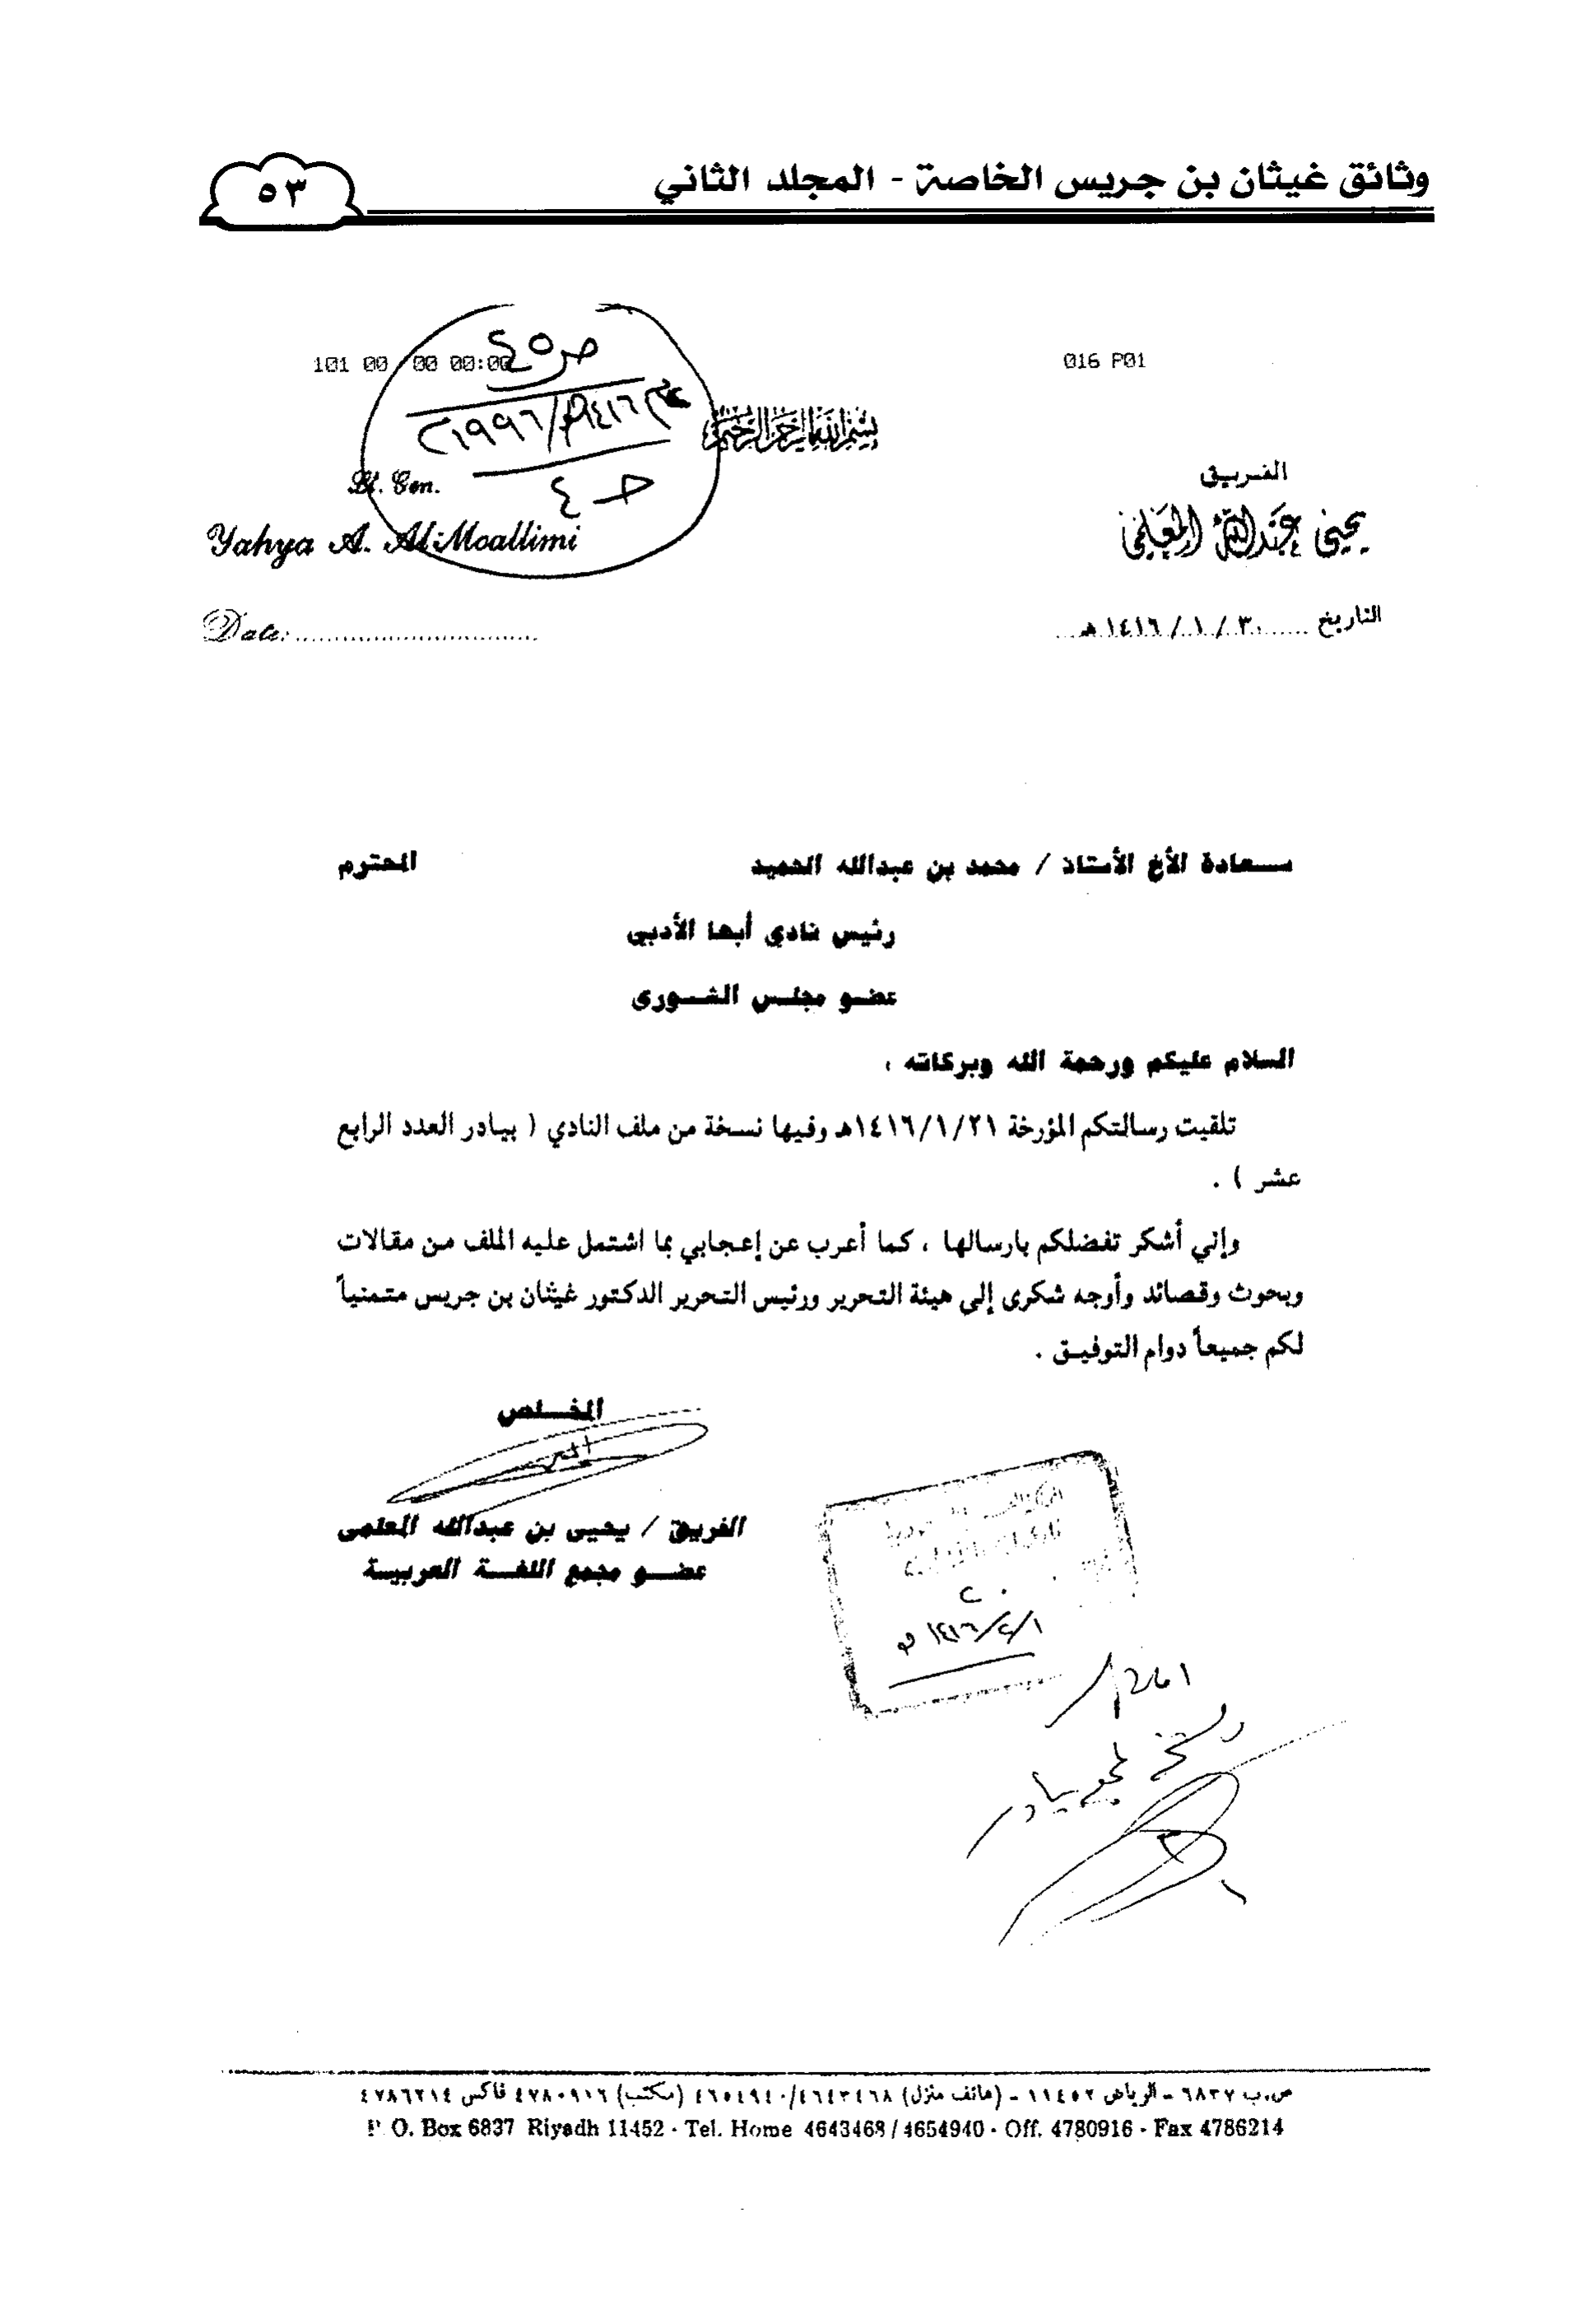 وثائق غيثان بن جريس الخاصة - المجلد الثاني
٥٣
101 00 00 00:00
016 P01
ص ٤٥
عام ١٤١٦هـ/١٩٩٦م
ح ٤
بسم الله الرحمن الرحيم
الفريق
Lt. Gen.
يحيى عبدالله المعلمي
Yahya A. Al-Moallimi
التاريخ ٣٠ / ١ / ١٤١٦هـ
Date:
سعادة الأخ الأستاذ / محمد بن عبدالله الحميد المحترم
رئيس نادي أبها الأدبي
عضو مجلس الشورى
السلام عليكم ورحمة الله وبركاته ،
تلقيت رسالتكم المؤرخة ١٤١٦/١/٢١هـ وفيها نسخة من ملف النادي ( بيادر العدد الرابع
عشر ) .
وإني أشكر تفضلكم بارسالها ، كما أعرب عن إعجابي بما اشتمل عليه الملف من مقالات
وبحوث وقصائد وأوجه شكرى إلى هيئة التحرير ورئيس التحرير الدكتور غيثان بن جريس متمنياً
لكم جميعاً دوام التوفيق .
المخلص
الفريق / يحيى بن عبدالله المعلمى
عضو مجمع اللغة العربية
بيادر
ص.ب ٦٨٣٧ - الرياض ١١٤٥٢ - (هاتف منزل) ٤٦٤٣٤٦٨/٤٦٥٤٩٤٠ (مكتب) ٤٧٨٠٩١٦ فاكس ٤٧٨٦٢١٤
P. O. Box 6837 Riyadh 11452 · Tel. Home 4643468 / 4654940 · Off. 4780916 · Fax 4786214